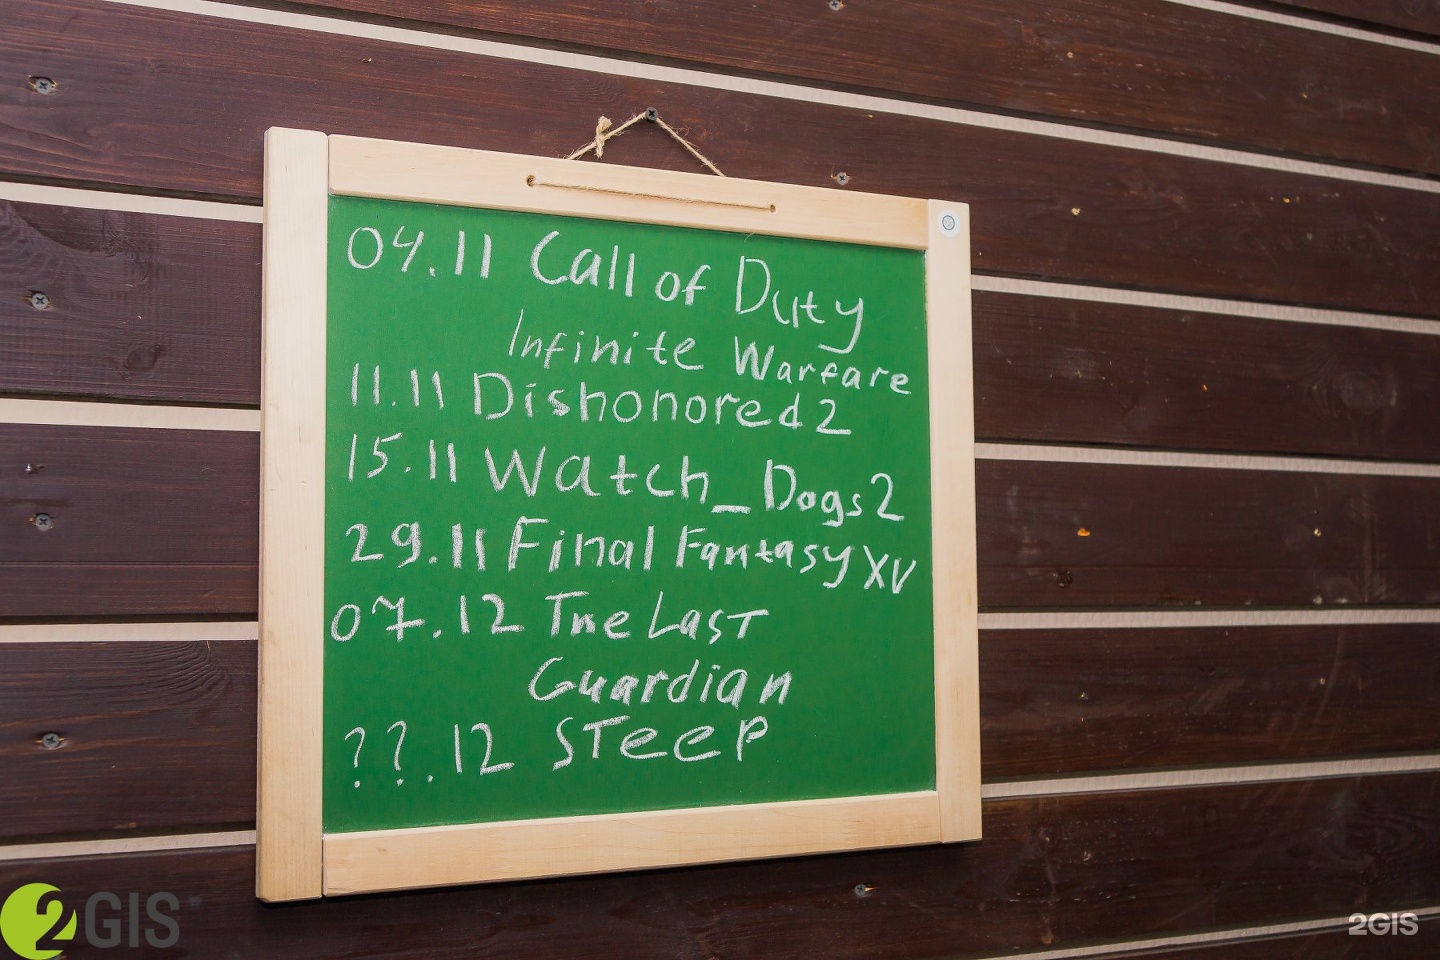 04.11 Call of Duty
Infinite Warfare
11.11 Dishonored 2
15.11 Watch_Dogs 2
29.11 Final Fantasy XV
07.12 The Last
Guardian
??.12 STeeP
2GIS
2GIS